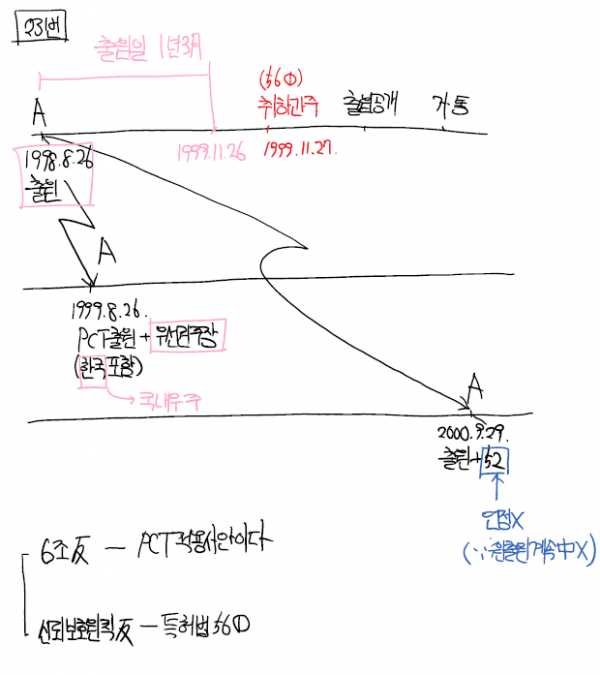 23번
출원일 1년3月
(56①)
취하간주
출원공개
거통
A
1999.11.26
1999.11.27.
1998.8.26
출원
A
1999.8.26.
PCT출원+우선권주장
(한국포함)
→국내우주
A
2000.9.29.
출원+52
인정X
(∵원출원계속中X)
6조反 — PCT적용사안이다
신뢰보호원칙反 — 특허법56①